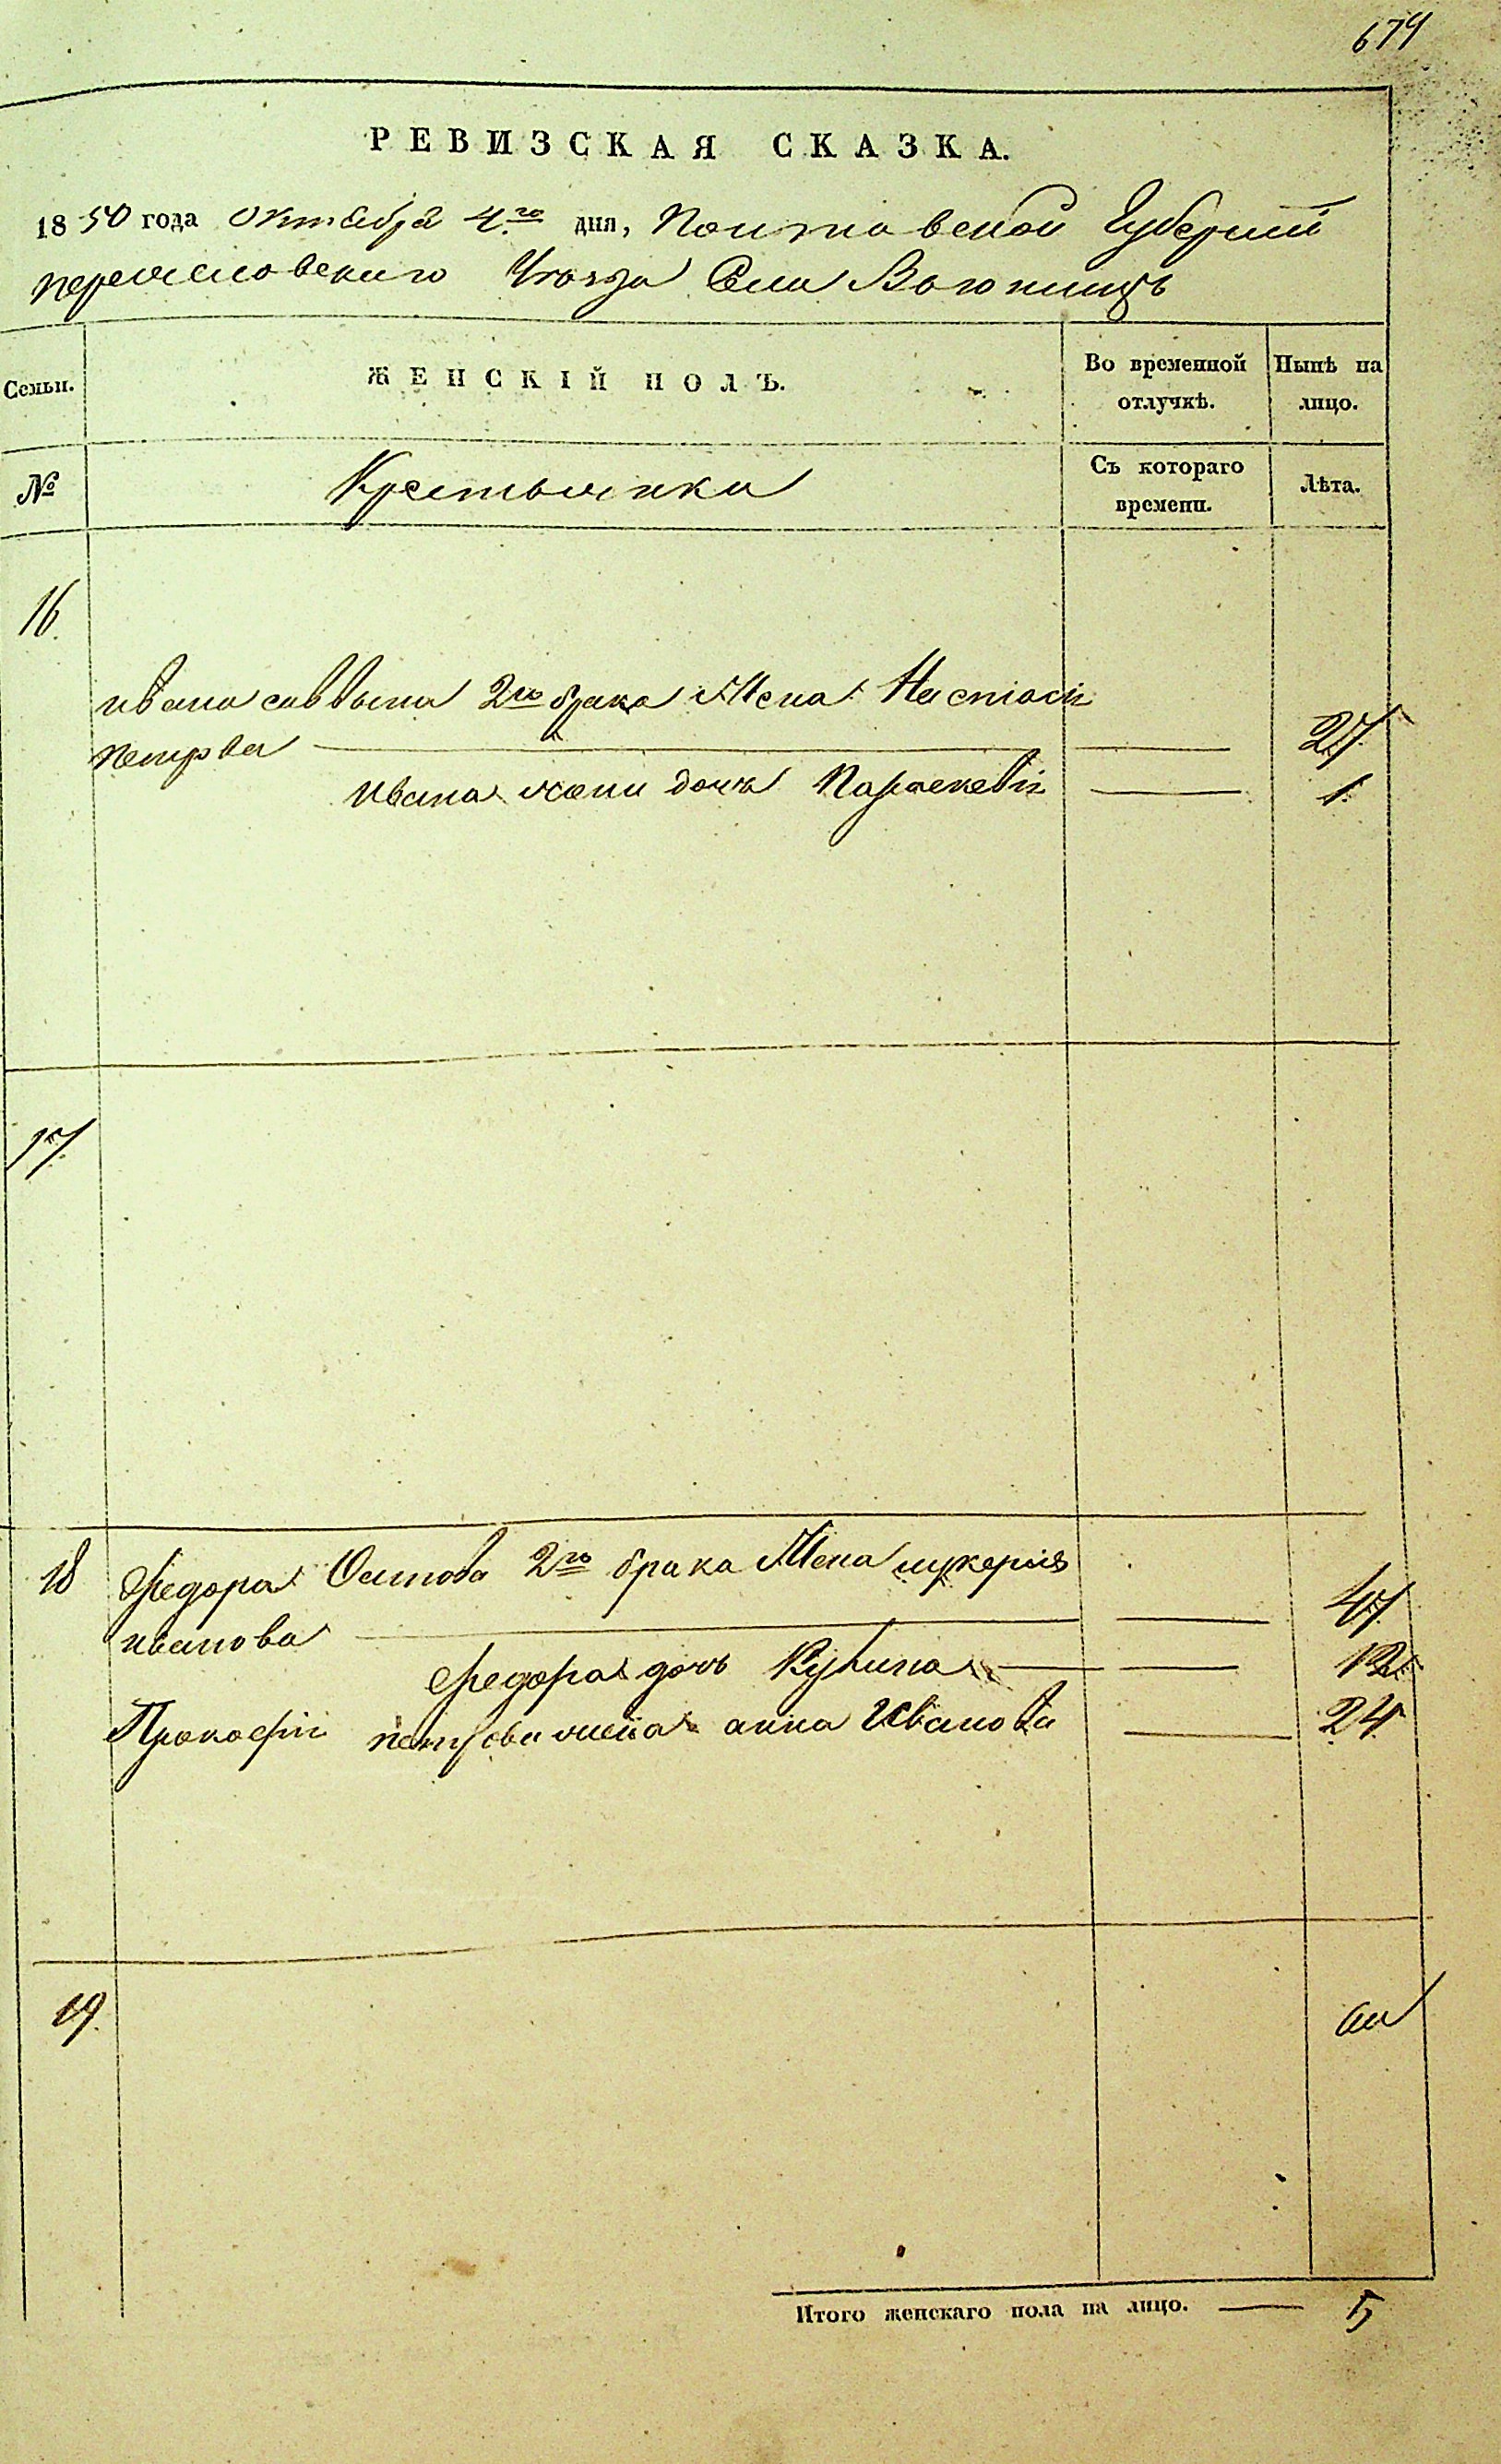 674
РЕВИЗСКАЯ СКАЗКА.
1850 года Октября 4го дня, Полтавской Губернии
переяславского Уезда Села Воюницъ
Семьи. ЖЕНСКІЙ ПОЛЪ. Во временной отлучкѣ. Нынѣ на лицо.
№ Крестьянки Съ котораго времени. Лѣта.
16
ивана саввина 2го брака Жена Настасия
петрова 27
Ивана дочь Параскевія 1
17
18 Федора 2го брака Жена лукерия
иванова 47
Федора дочь 12
Прокофия петрова жена анна Иванова 24
19
Итого женскаго пола на лицо. 5